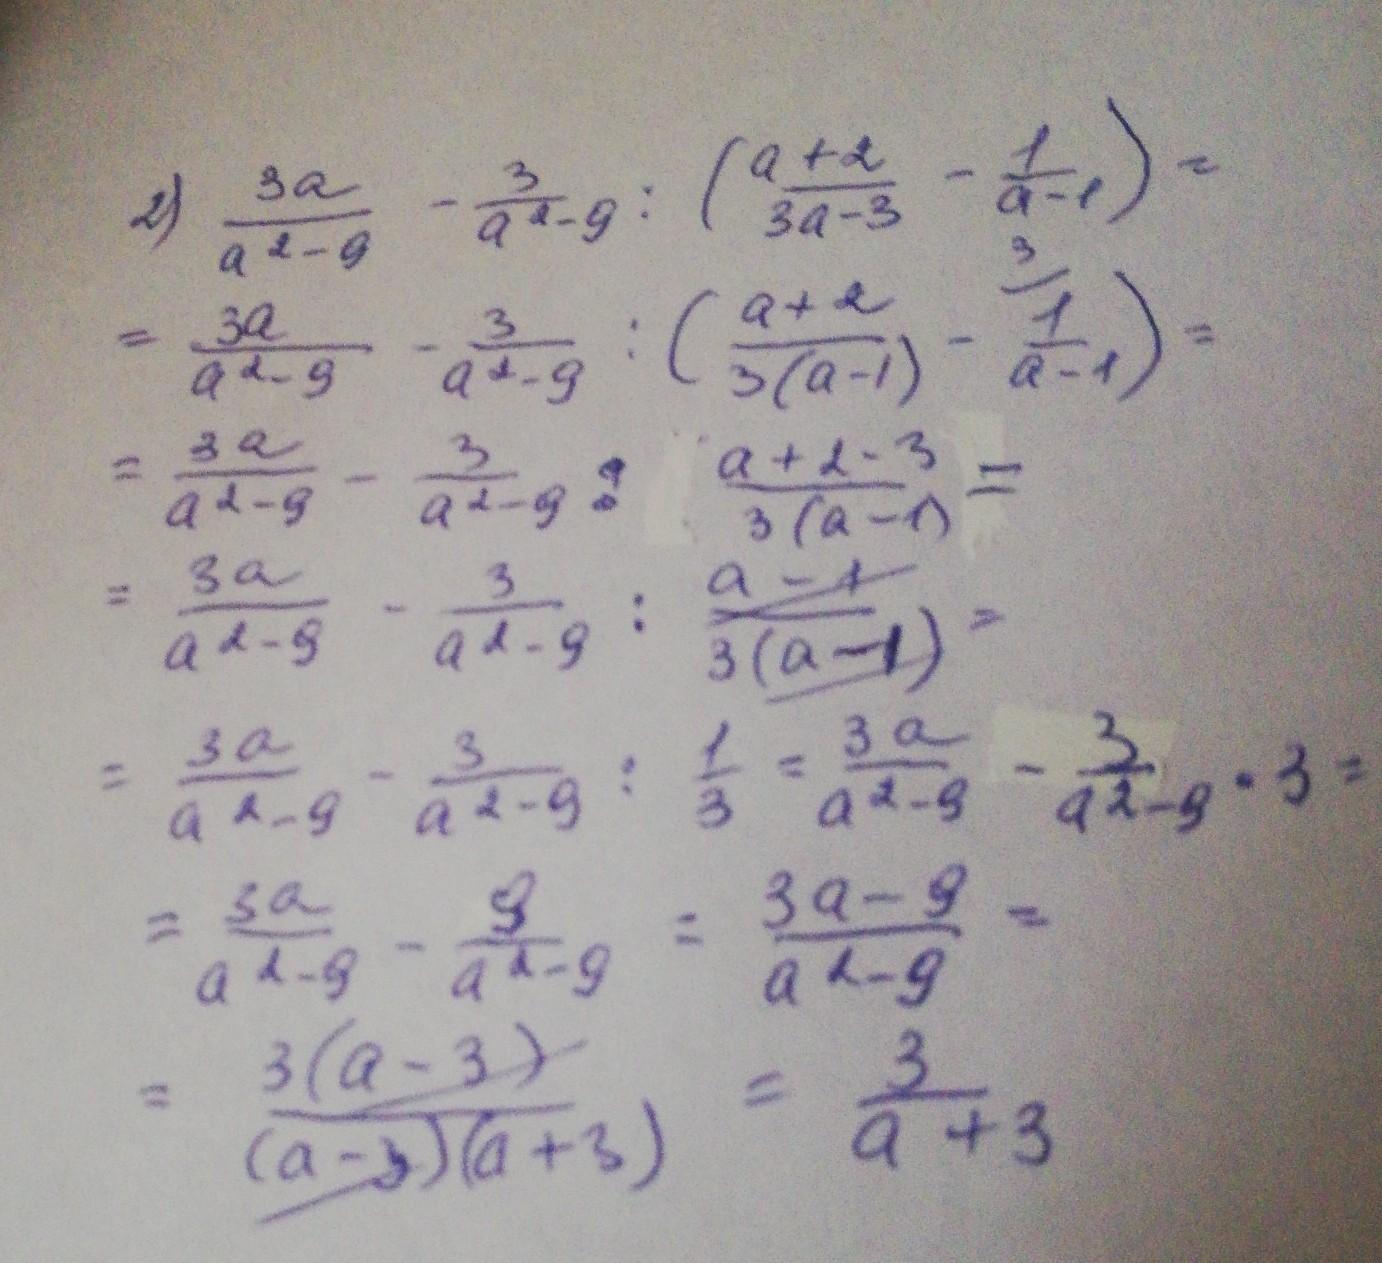 2) 3a/(a²-9) - 3/(a²-9) : ((a+2)/(3a-3) - 1/(a-1)) =
= 3a/(a²-9) - 3/(a²-9) : ((a+2)/(3(a-1)) - ³⁄ 1/(a-1)) =
= 3a/(a²-9) - 3/(a²-9) : (a+2-3)/(3(a-1)) =
= 3a/(a²-9) - 3/(a²-9) : (a-1)/(3(a-1)) =
= 3a/(a²-9) - 3/(a²-9) : 1/3 = 3a/(a²-9) - 3/(a²-9) · 3 =
= 3a/(a²-9) - 9/(a²-9) = (3a-9)/(a²-9) =
= 3(a-3)/((a-3)(a+3)) = 3/(a+3)